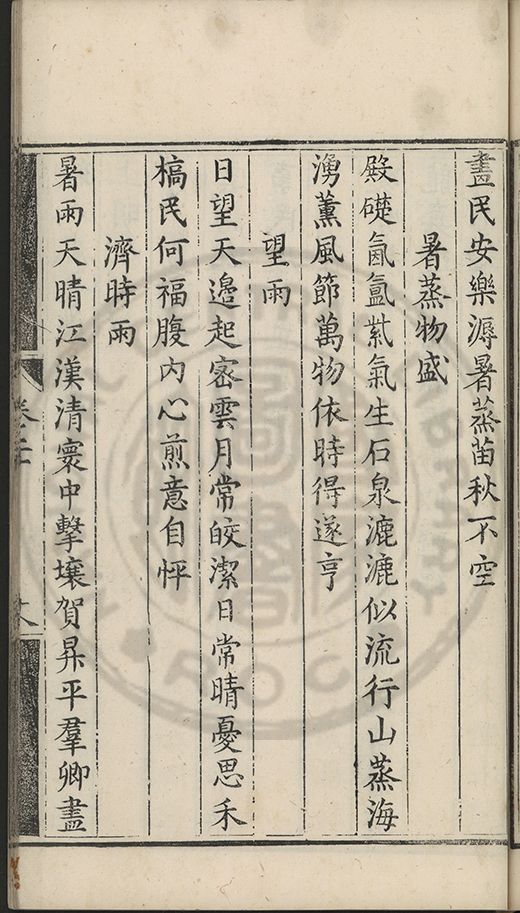 盡民安樂溽暑蒸苗秋不空
暑蒸物盛
殿礎氤氳紫氣生石泉漉漉似流行山蒸海
湧薰風節萬物依時得遂亨
望雨
日望天邉起宻雲月常皎潔日常晴憂思禾
槁民何福腹内心煎意自怦
濟時雨
暑雨天晴江漢清寰中擊壤賀昇平羣卿盡